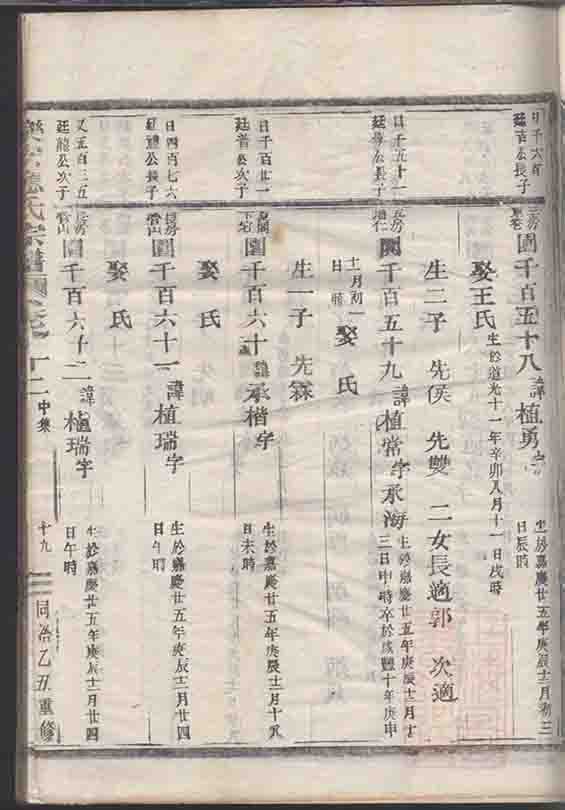 日千六百
廷吉公長子
圍千百五十八 諱植勇 字
生於嘉慶廿五年庚辰十二月初三
日辰時
娶王氏 生於道光十一年辛卯八月十一日戌時
生二子 先侯 先雙 二女長適郭 次適
日千五十一
公長子
千百五十九 諱植常字承海
生於嘉慶廿五年庚辰十二月十
三日申時卒於咸豐十年庚申
十一月初一
日 時
娶 氏
生一子 先霖
日千百廿一
廷普公次子
圍千百六十 諱承楷字
生於嘉慶廿五年庚辰十二月十八
日未時
娶 氏
日四百七六
公長子
圍千百六十一 諱植瑞字
生於嘉慶廿五年庚辰十二月廿四
日午時
娶 氏
又五百三五
廷龍公次子
圍千百六十二 諱植瑞字
生於嘉慶廿五年庚辰十二月廿四
日午時
氏宗譜
十二
中集
十九
同治乙丑重修